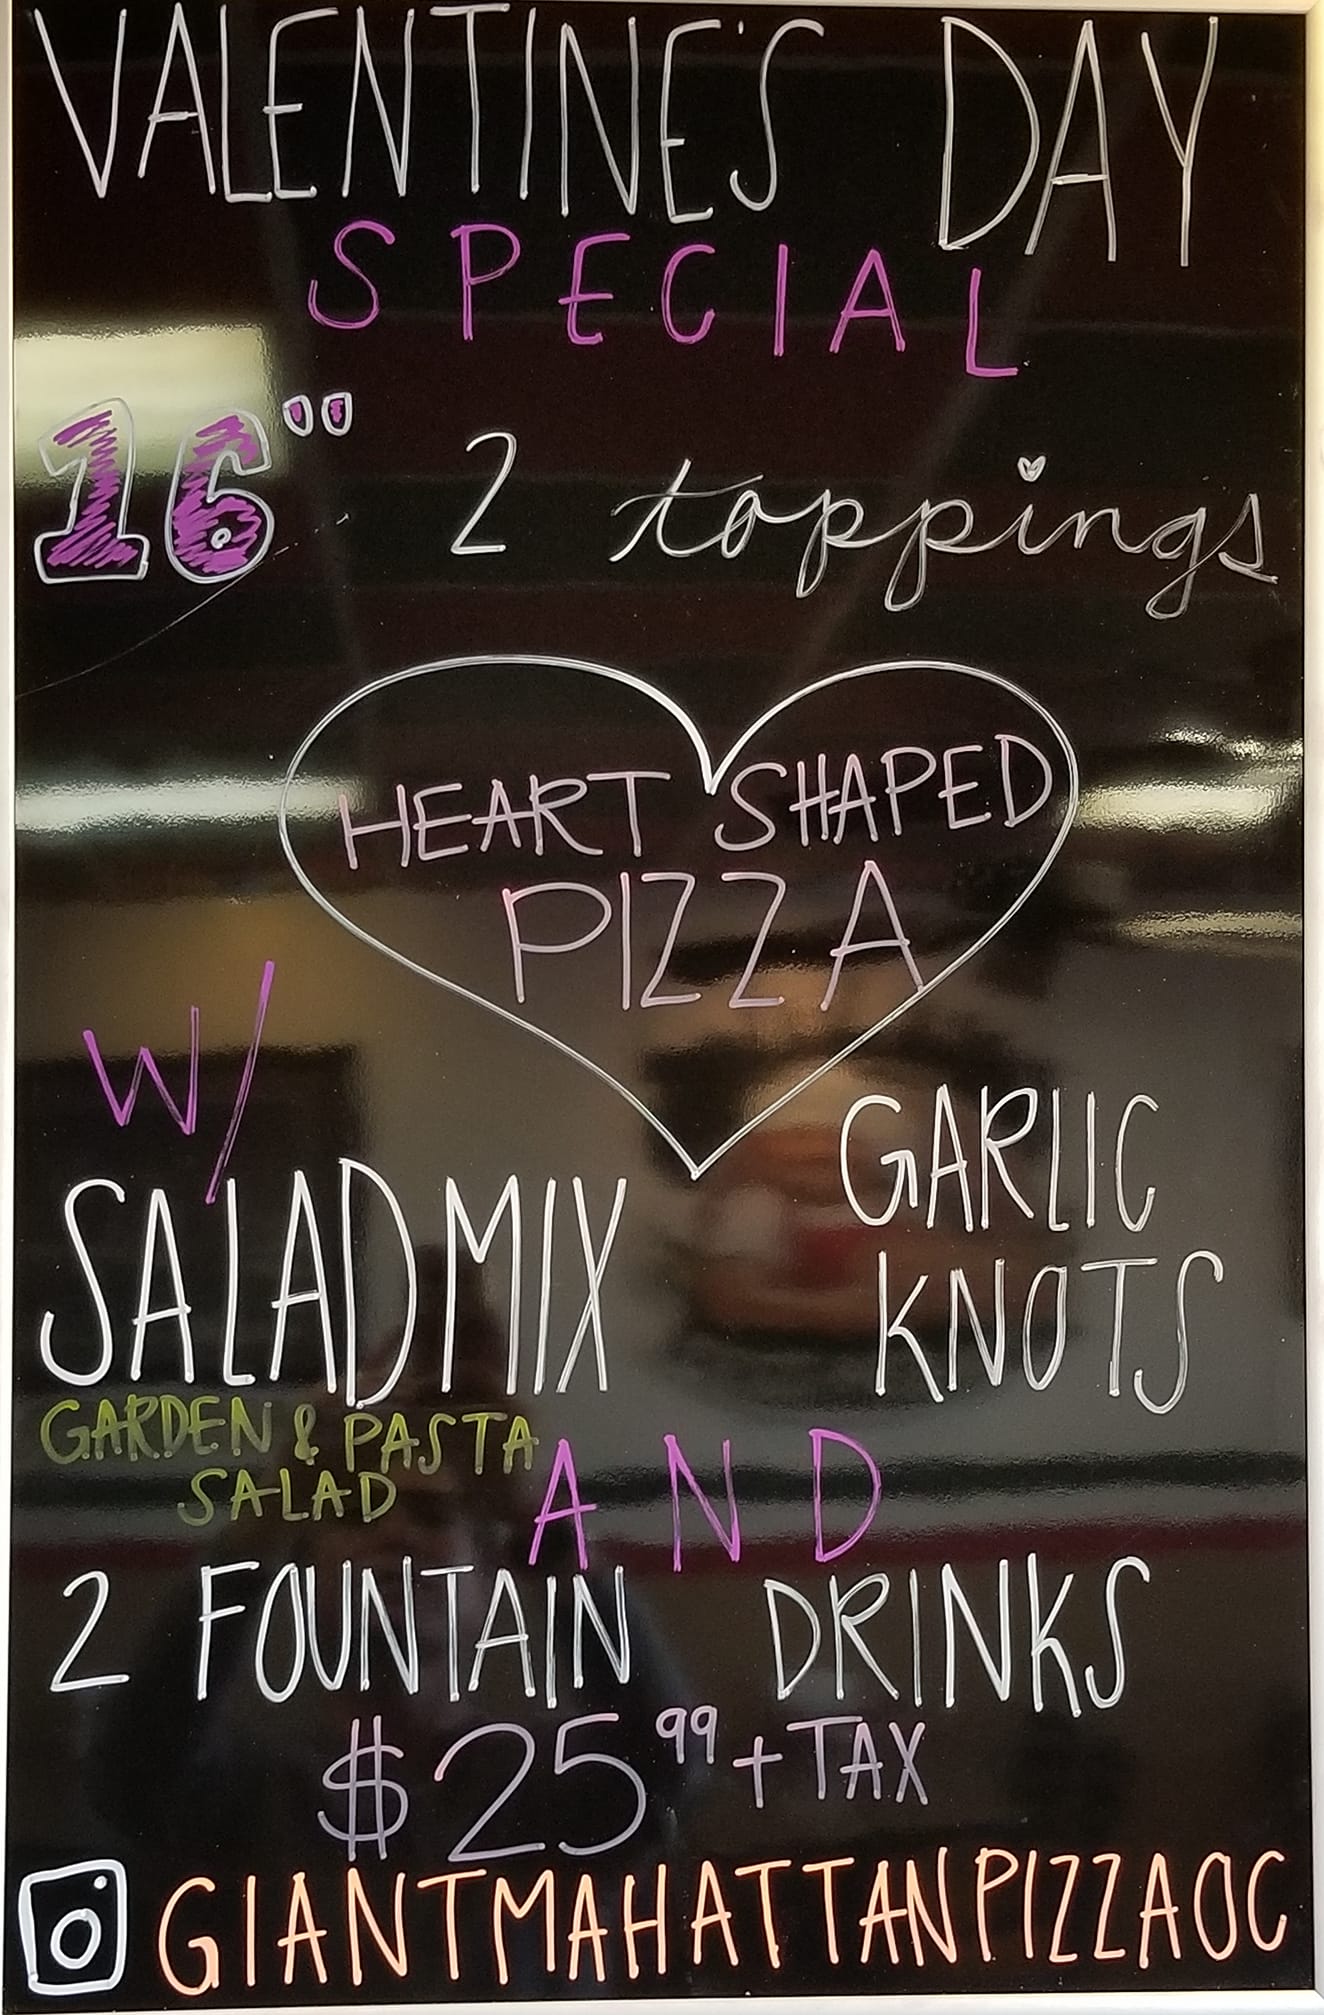 VALENTINE'S DAY
SPECIAL
16" 2 toppings
HEART SHAPED
PIZZA
W/
GARLIC
KNOTS
SALAD MIX
GARDEN & PASTA
SALAD
AND
2 FOUNTAIN DRINKS
$25 99 + TAX
GIANTMAHATTANPIZZAOC